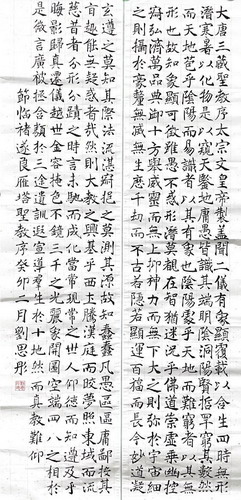 大唐三藏聖教序太宗文皇帝製蓋聞二儀有象顯覆載以含生四時無形
潛寒暑以化物是以窺天鑒地庸愚皆識其端明陰洞陽賢哲罕窮其數然
而天地苞乎陰陽而易識者以其有象也陰陽處乎天地而難窮者以其無
形也故知象顯可徵雖愚不惑形潛莫覩在智猶迷況乎佛道崇虛乘幽控
寂弘濟萬品典御十方舉威靈而無上抑神力而無下大之則弥於宇宙細
之則攝於豪釐無滅無生歷千劫而不古若隱若顯運百福而長今妙道凝
玄遵之莫知其際法流湛寂挹之莫測其源故知蠢蠢凡愚區區庸鄙投其
旨趣能無疑惑者哉然則大教之興基乎西土騰漢庭而皎夢照東域而流
慈昔者分形分蹟之時言未馳而成化當常現常之世人仰德而知遵及乎
晦影歸真遷儀越世金容掩色不鏡三千之光麗象開圖空端四八之相於
是微言廣被拯含類於三途遺訓遐宣導羣生於十地然而真教難仰
節臨褚遂良雁塔聖教序癸卯二月劉思彤